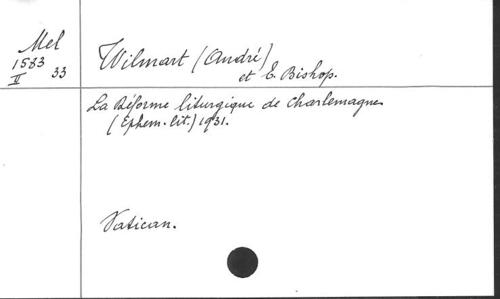 Mel
1583
II 33
Wilmart (André)
et E. Bishop.
La Réforme liturgique de Charlemagne
(Ephem. lit.) 1931.
Vatican.